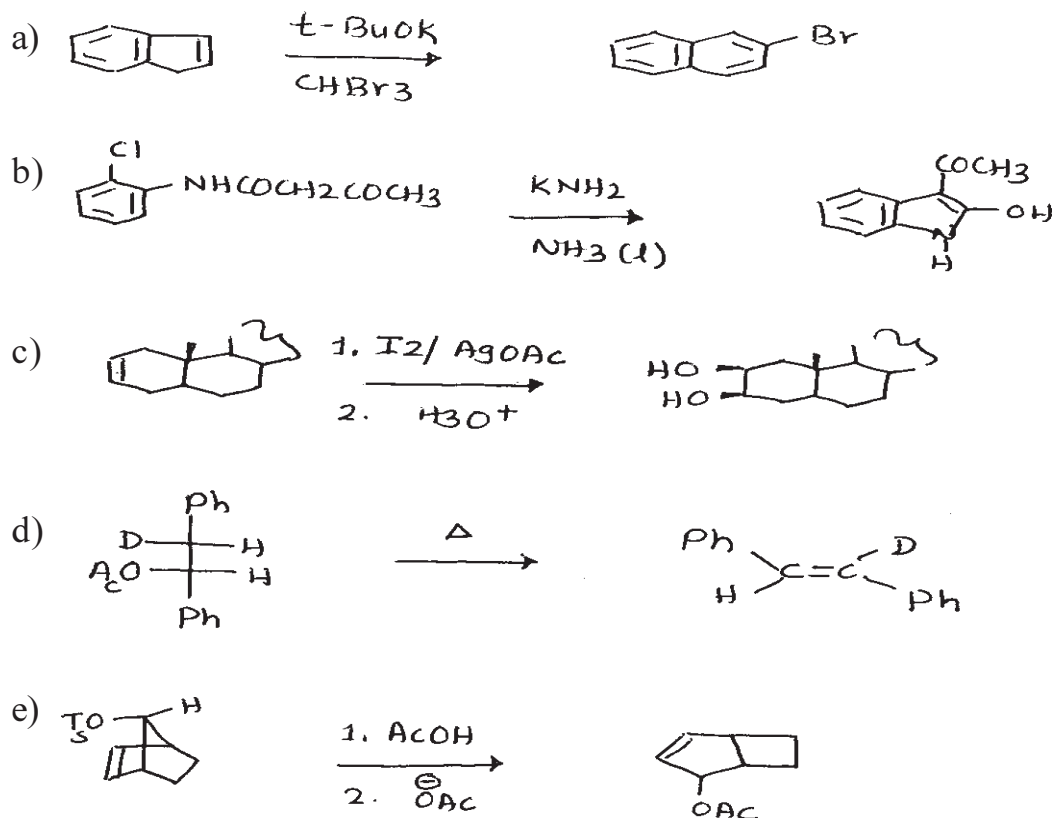 a) t-BuOK
CHBr3
Br
b) Cl
NHCOCH2COCH3
KNH2
NH3(l)
COCH3
OH
N
H
c) 1. I2/AgOAc
2. H3O+
HO
HO
d) Ph
D H
AcO H
Ph
Δ
Ph D
C=C
H Ph
e) TsO H
1. AcOH
2. ⊖OAc
OAC